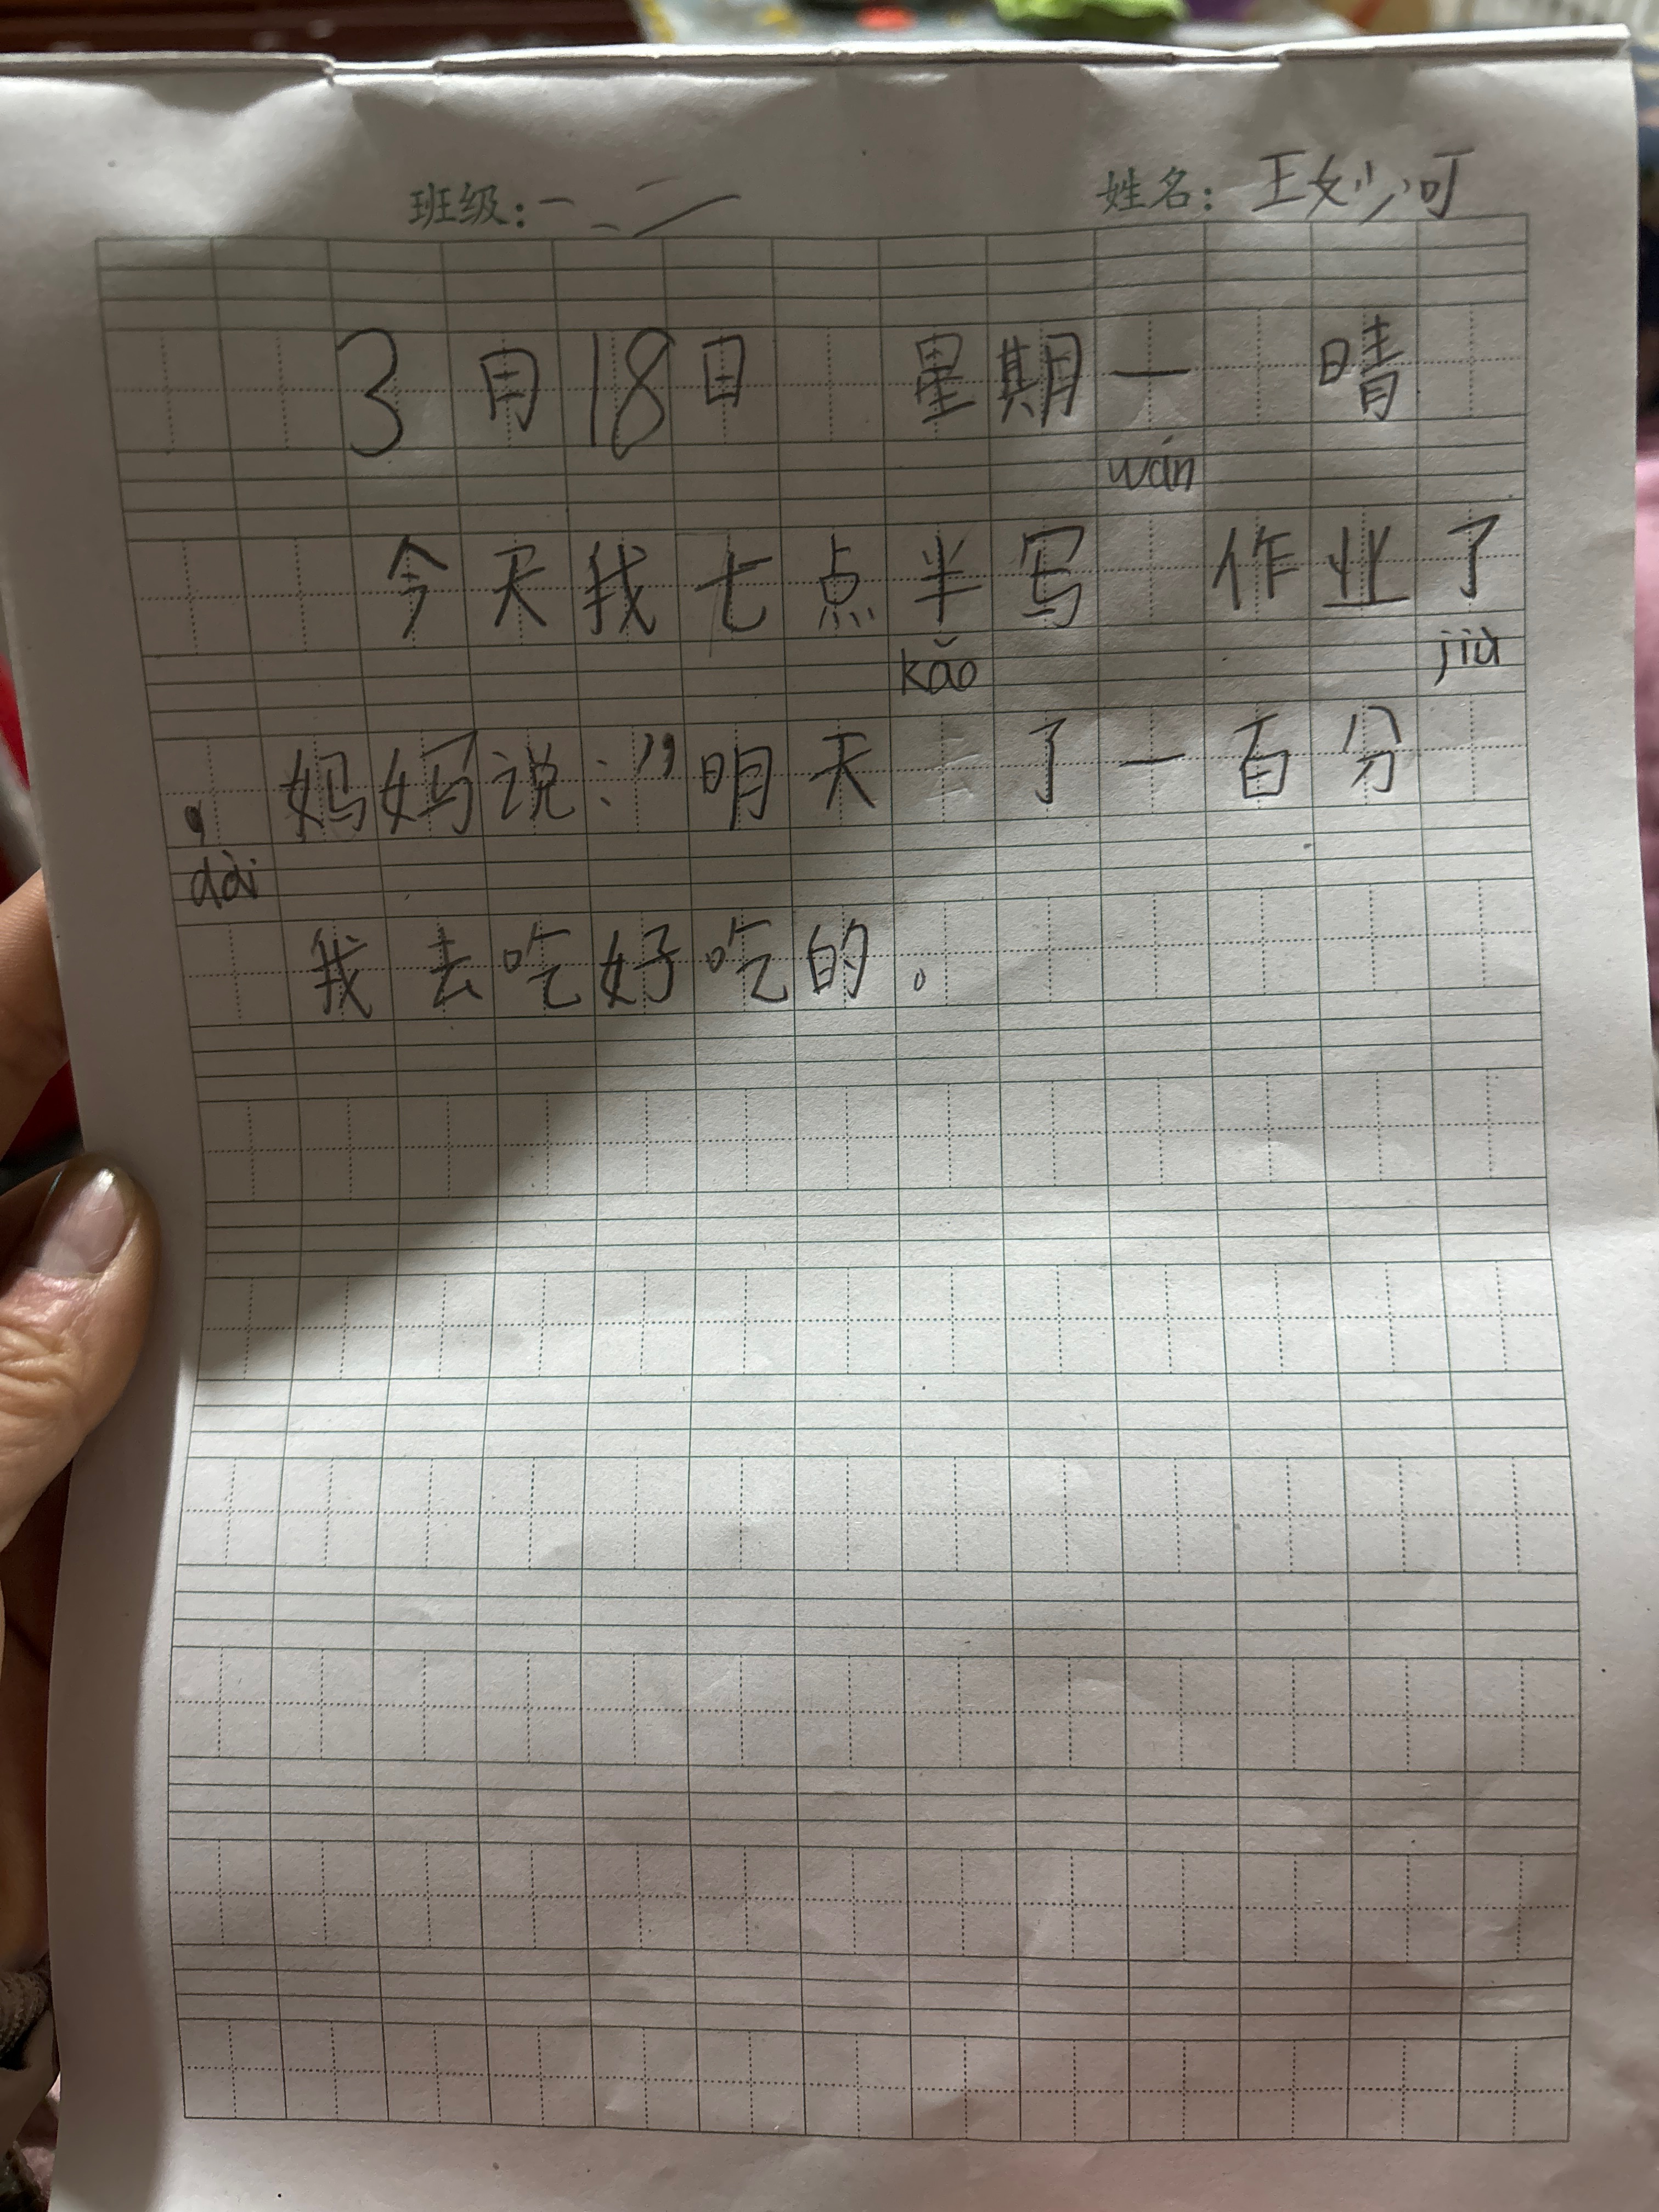 班级：一、二 姓名：王妙可
3月18日 星期一 晴
今天我七点半写wán作业了
，妈妈说：”明天kǎo了一百分jiù
dài我去吃好吃的。